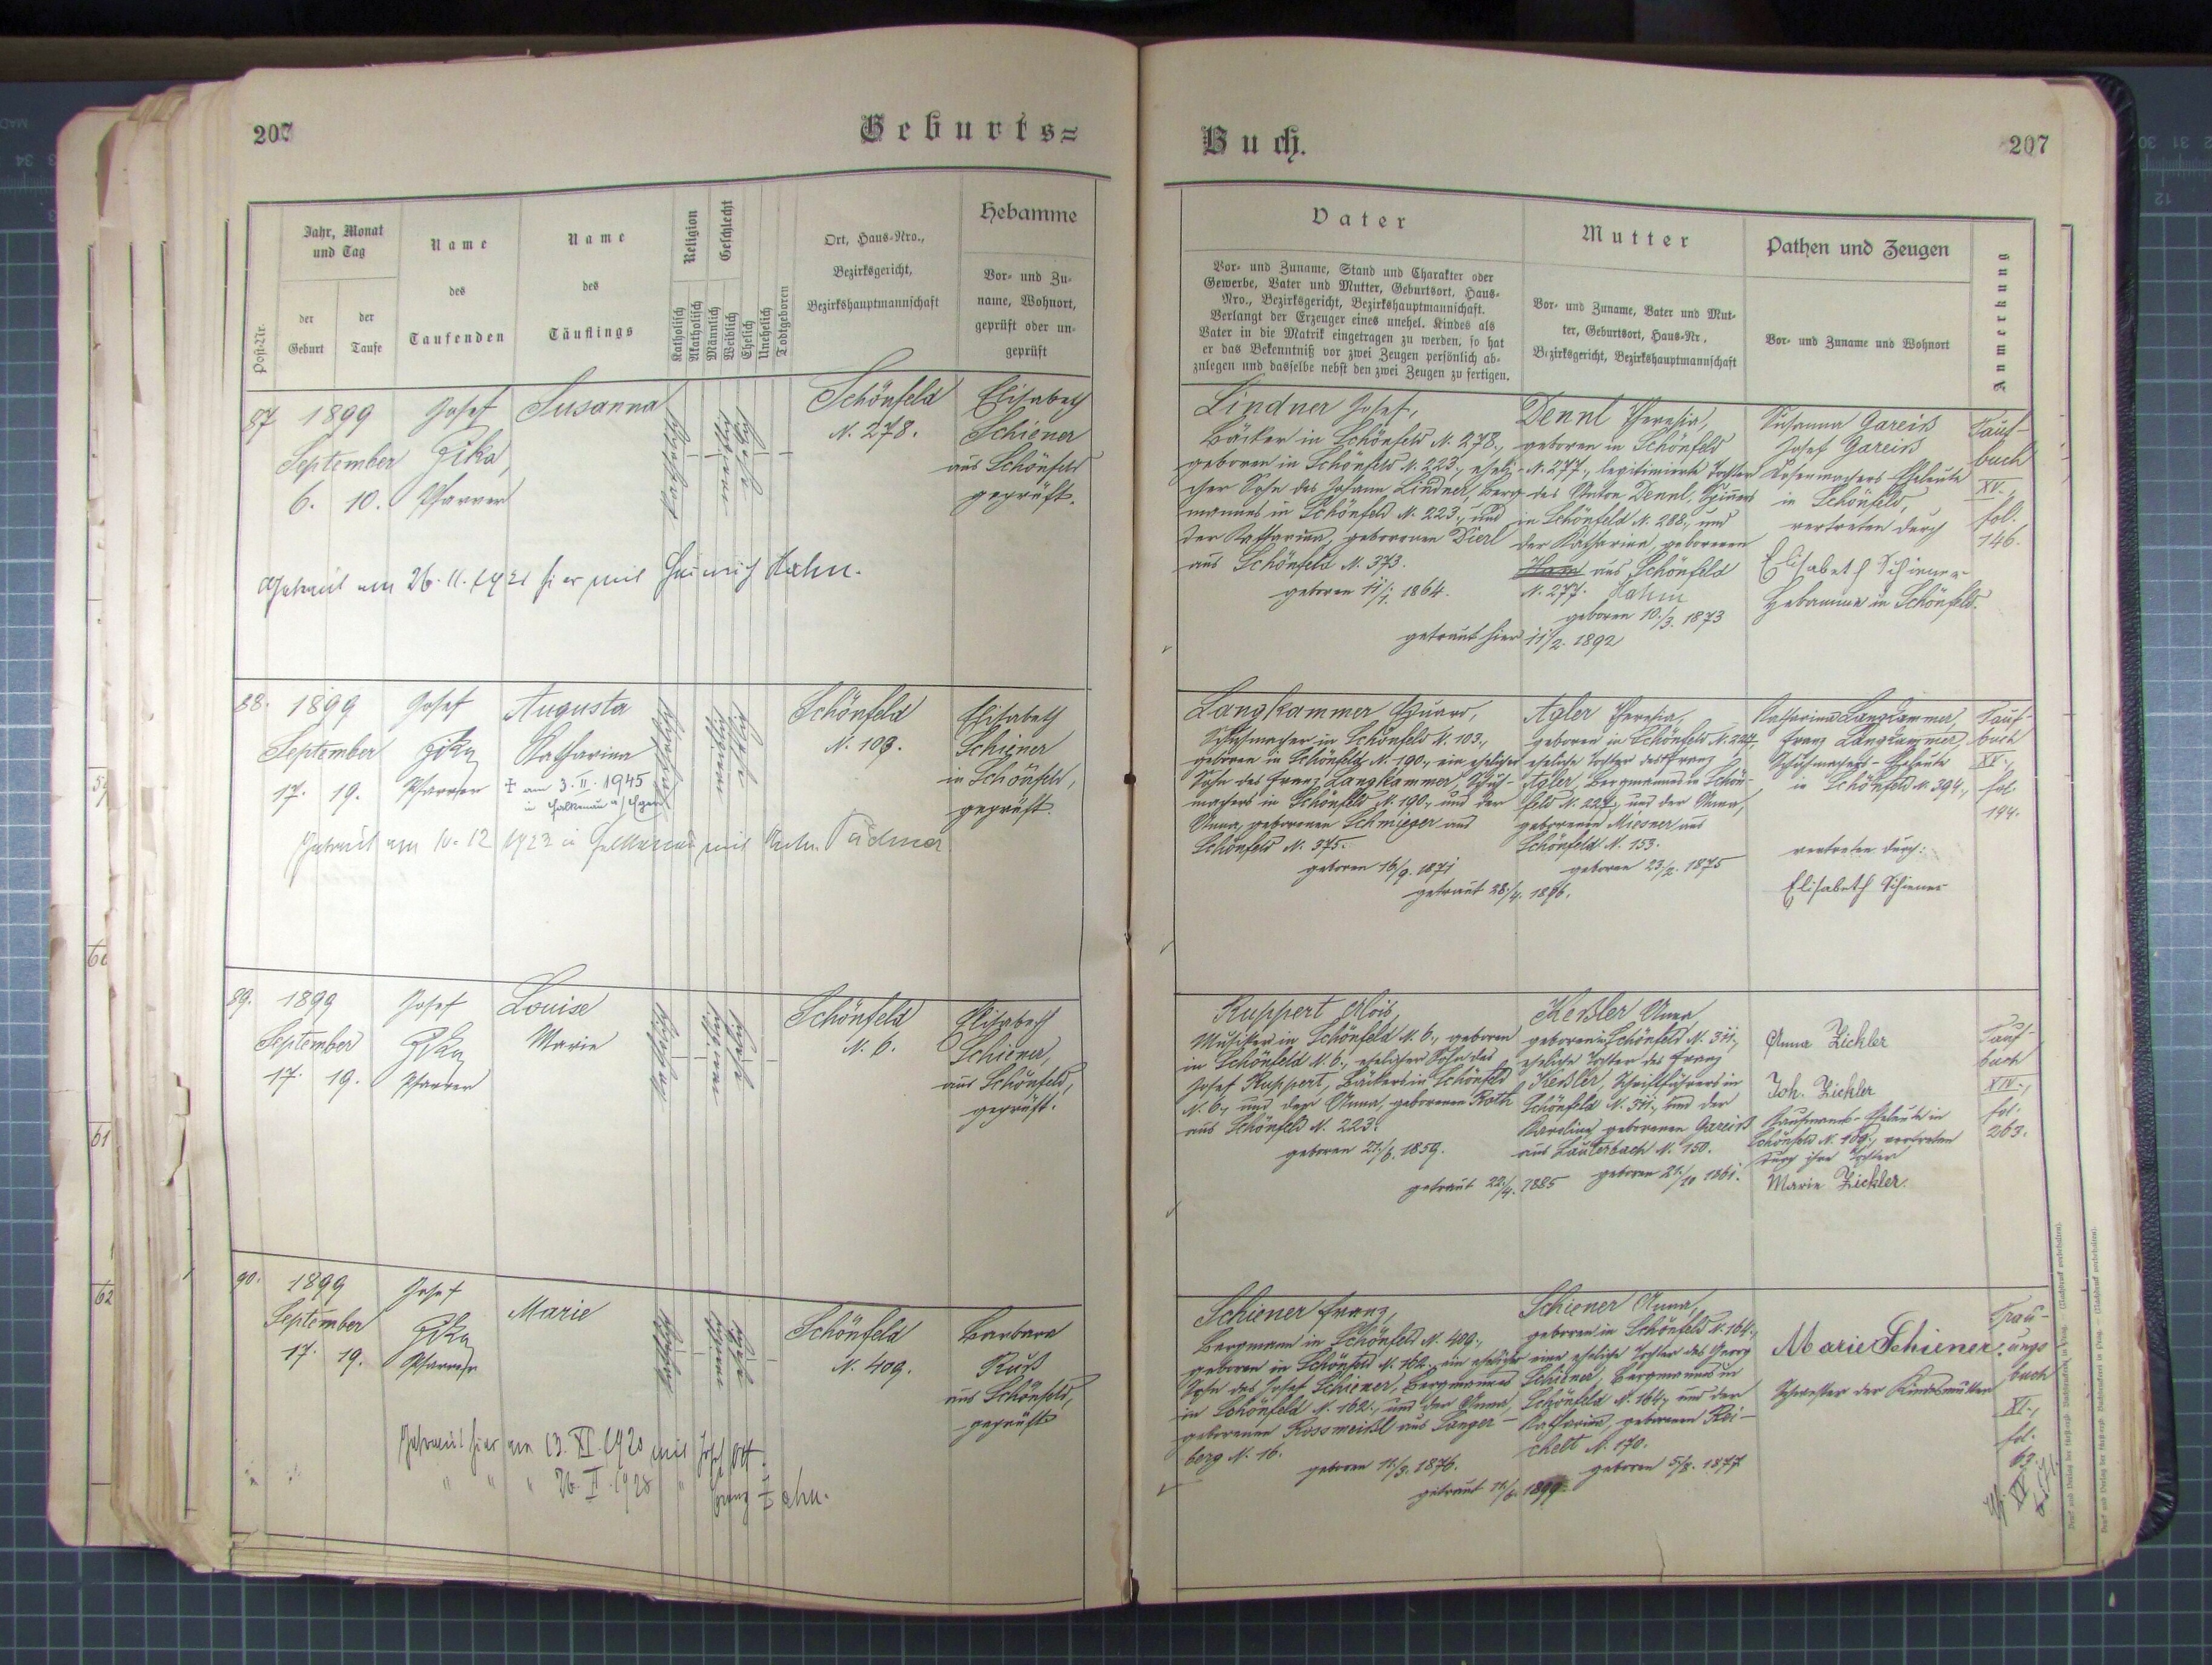 207
Geburts=
Post-Nr.
Jahr, Monat
und Tag
der
Geburt
der
Taufe
Name
des
Taufenden
Name
des
Täuflings
Religion
Katholisch
Akatholisch
Geschlecht
Männlich
Weiblich
Ehelich
Unehelich
Todtgeboren
Ort, Haus-Nro.,
Bezirksgericht,
Bezirkshauptmannschaft
Hebamme
Vor- und Zu-
name, Wohnort,
geprüft oder un-
geprüft
87 1899
September
6. 10.
Josef
Zika,
Pfarrer
Susanna
Schönfeld
N. 278.
Elisabeth
Schiener
aus Schönfeld
geprüft.
Getraut am 26. 11. 1921 hier mit Heinrich Hahn.
88. 1899
September
17. 19.
Josef
Zika
Pfarrer
Augusta
Katharina
† am 3. II. 1945
in Falkenau a/Eger
Schönfeld
N. 103.
Elisabeth
Schiener
in Schönfeld,
geprüft.
Getraut am 10. 12 1923 in Falkenau mit
89. 1899
September
17. 19.
Josef
Zika
Pfarrer
Louise
Marie
Schönfeld
N. 6.
Elisabeth
Schiener,
aus Schönfeld,
geprüft.
90. 1899
September
17. 19.
Josef
Zika
Pfarrer
Marie
Schönfeld
N. 409.
Barbara
Ruß
aus Schönfeld,
geprüft
Getraut hier am 13. XI. 1920 mit Josef Ott.
" " " 26. II. 1928 " Franz Hahn.
Buch.
207
Vater
Vor- und Zuname, Stand und Charakter oder
Gewerbe, Vater und Mutter, Geburtsort, Haus-
Nro., Bezirksgericht, Bezirkshauptmannschaft.
Verlangt der Erzeuger eines unehel. Kindes als
Vater in die Matrik eingetragen zu werden, so hat
er das Bekenntniß vor zwei Zeugen persönlich ab-
zulegen und dasselbe nebst den zwei Zeugen zu fertigen.
Mutter
Vor- und Zuname, Vater und Mut-
ter, Geburtsort, Haus-Nr.,
Bezirksgericht, Bezirkshauptmannschaft
Pathen und Zeugen
Vor- und Zuname und Wohnort
Anmerkung
Lindner Josef,
Bäcker in Schönfeld N. 278.,
geboren in Schönfeld N. 223., eheli-
cher Sohn des Johann Lindner, Berg-
mannes in Schönfeld N. 223., und
der Katharina, geborenen Dierl
aus Schönfeld N. 373.
geboren 11/1. 1864.
Dennl Theresia,
geboren in Schönfeld
N. 277., legitimierte Tochter
des Anton Dennl,
in Schönfeld N. 288., und
der Katharina, geborenen
aus Schönfeld
N. 277. Hahn
geboren 10./3. 1873
getraut hier 11/2. 1892
Susanna Gareis
Josef Gareis
Eheleute
in Schönfeld,
vertreten durch
Elisabeth Schiener
Hebamme in Schönfeld.
Tauf-
buch
XV.
fol.
146.
Langkammer Eduard,
Schuhmacher in Schönfeld N. 103.,
geboren in Schönfeld N. 190., ein ehelicher
Sohn des Franz Langkammer, Schuh-
machers in Schönfeld N. 190., und der
Anna, geborenen Schmieger aus
Schönfeld N. 375.
geboren 16/9. 1871
Agler Theresia,
geboren in Schönfeld N. 227,
eheliche Tochter des Franz
Agler, Bergmannes in Schön-
feld N. 227., und der Anna,
geborenen Miesner aus
Schönfeld N. 153.
geboren 23/2. 1875
getraut 28./4. 1896.
Katharina Langkammer,
Franz Langkammer,
Schuhmachers-Eheleute
in Schönfeld N. 394.,
vertreten durch:
Elisabeth Schiener
Tauf-
buch
XV.,
fol.
194.
Ruppert Alois,
Musiker in Schönfeld N. 6., geboren
in Schönfeld N. 6., ehelicher Sohn des
Josef Ruppert, Bäckers in Schönfeld
N. 6., und der Anna, geborenen Roth
aus Schönfeld N. 223.
geboren 21./6. 1859.
Keßler Anna,
geboren in Schönfeld N. 311.,
eheliche Tochter des Franz
Keßler, Schriftführers in
Schönfeld N. 311., und der
Karoline geborenen Gareis
aus Lauterbach N. 150.
geboren 21./10 1861.
getraut 22./4. 1885
Anna Zickler
Joh. Zickler
Kaufmanns-Eheleute in
Schönfeld N. 109., vertreten
durch ihre Tochter
Marie Zickler.
Tauf-
buch
XIV.,
fol.
263.
Schiener Franz,
Bergmann in Schönfeld N. 409.,
geboren in Schönfeld N. 162., ein ehelicher
Sohn des Josef Schiener, Bergmannes
in Schönfeld N. 162., und der Anna,
geborenen Rossmeißl aus Langer-
berg N. 16.
geboren 11./3. 1876.
Schiener Anna,
geboren in Schönfeld N. 164.,
eine eheliche Tochter des Georg
Schiener, Bergmannes in
Schönfeld N. 164., und der
Katharina, geborenen Rei-
chelt N. 170.
geboren 5/8. 1877
getraut 11/6. 1899.
Marie Schiener,
Schwester der Kindesmutter
Trau-
ungs
buch
XI.,
fol.
69.